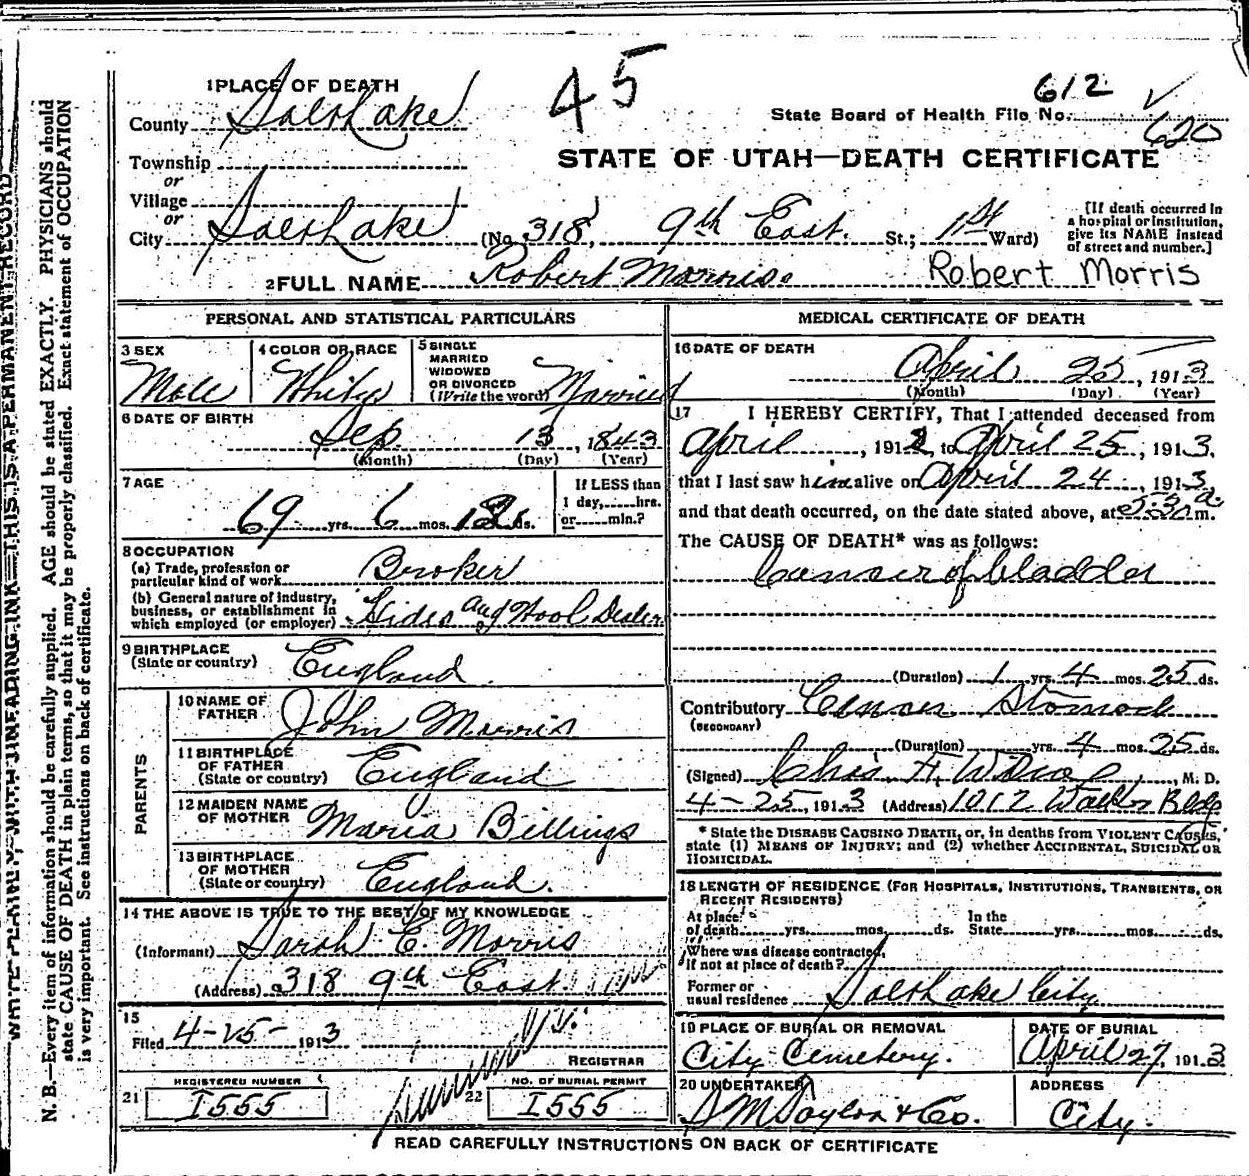 45
612
620
State Board of Health File No.
STATE OF UTAH—DEATH CERTIFICATE
1 PLACE OF DEATH
County Salt Lake
Township
or
Village
or
City Salt Lake (No. 318, 9th East. St.; 1st Ward)
[If death occurred in a hospital or institution, give its NAME instead of street and number.]
2 FULL NAME Robert Morris. Robert Morris
PERSONAL AND STATISTICAL PARTICULARS
3 SEX Male
4 COLOR OR RACE White
5 SINGLE MARRIED WIDOWED OR DIVORCED (Write the word) Married
6 DATE OF BIRTH
Sep. 13, 1843
(Month) (Day) (Year)
7 AGE
69 yrs. 6 mos. ds.
If LESS than 1 day, hrs. or min.?
8 OCCUPATION
(a) Trade, profession or particular kind of work Broker
(b) General nature of industry, business, or establishment in which employed (or employer) Hides and Wool Dealer
9 BIRTHPLACE (State or country) England
PARENTS
10 NAME OF FATHER John Morris
11 BIRTHPLACE OF FATHER (State or country) England
12 MAIDEN NAME OF MOTHER Maria Billings
13 BIRTHPLACE OF MOTHER (State or country) England.
14 THE ABOVE IS TRUE TO THE BEST OF MY KNOWLEDGE
(Informant) Sarah E. Morris
(Address) 318 9th East
15
Filed 4-25- 1913
REGISTRAR
21 REGISTERED NUMBER 1555
22 NO. OF BURIAL PERMIT 1555
MEDICAL CERTIFICATE OF DEATH
16 DATE OF DEATH
April 25, 1913
(Month) (Day) (Year)
17 I HEREBY CERTIFY, That I attended deceased from
April, 1912, to April 25, 1913,
that I last saw him alive on April 24, 1913,
and that death occurred, on the date stated above, at 5:30 a. m.
The CAUSE OF DEATH* was as follows:
Cancer of bladder
(Duration) 1 yrs. 4 mos. 25 ds.
Contributory Cancer Stomach
(SECONDARY)
(Duration) yrs. 4 mos. 25 ds.
(Signed) Chas. F. , M. D.
4-25, 1913 (Address) 1012 Walker Bldg
* State the DISEASE CAUSING DEATH, or, in deaths from VIOLENT CAUSES,
state (1) MEANS OF INJURY; and (2) whether ACCIDENTAL, SUICIDAL OR
HOMICIDAL.
18 LENGTH OF RESIDENCE (FOR HOSPITALS, INSTITUTIONS, TRANSIENTS, OR
RECENT RESIDENTS)
At place of death yrs. mos. ds. In the State yrs. mos. ds.
Where was disease contracted,
if not at place of death?
Former or usual residence Salt Lake City
19 PLACE OF BURIAL OR REMOVAL
City Cemetery.
DATE OF BURIAL
April 27, 1913
20 UNDERTAKER
S M Taylor & Co.
ADDRESS
City.
READ CAREFULLY INSTRUCTIONS ON BACK OF CERTIFICATE
WRITE PLAINLY, WITH UNFADING INK—THIS IS A PERMANENT RECORD
N. B.—Every item of information should be carefully supplied. AGE should be stated EXACTLY. PHYSICIANS should
state CAUSE OF DEATH in plain terms, so that it may be properly classified. Exact statement of OCCUPATION
is very important. See instructions on back of certificate.